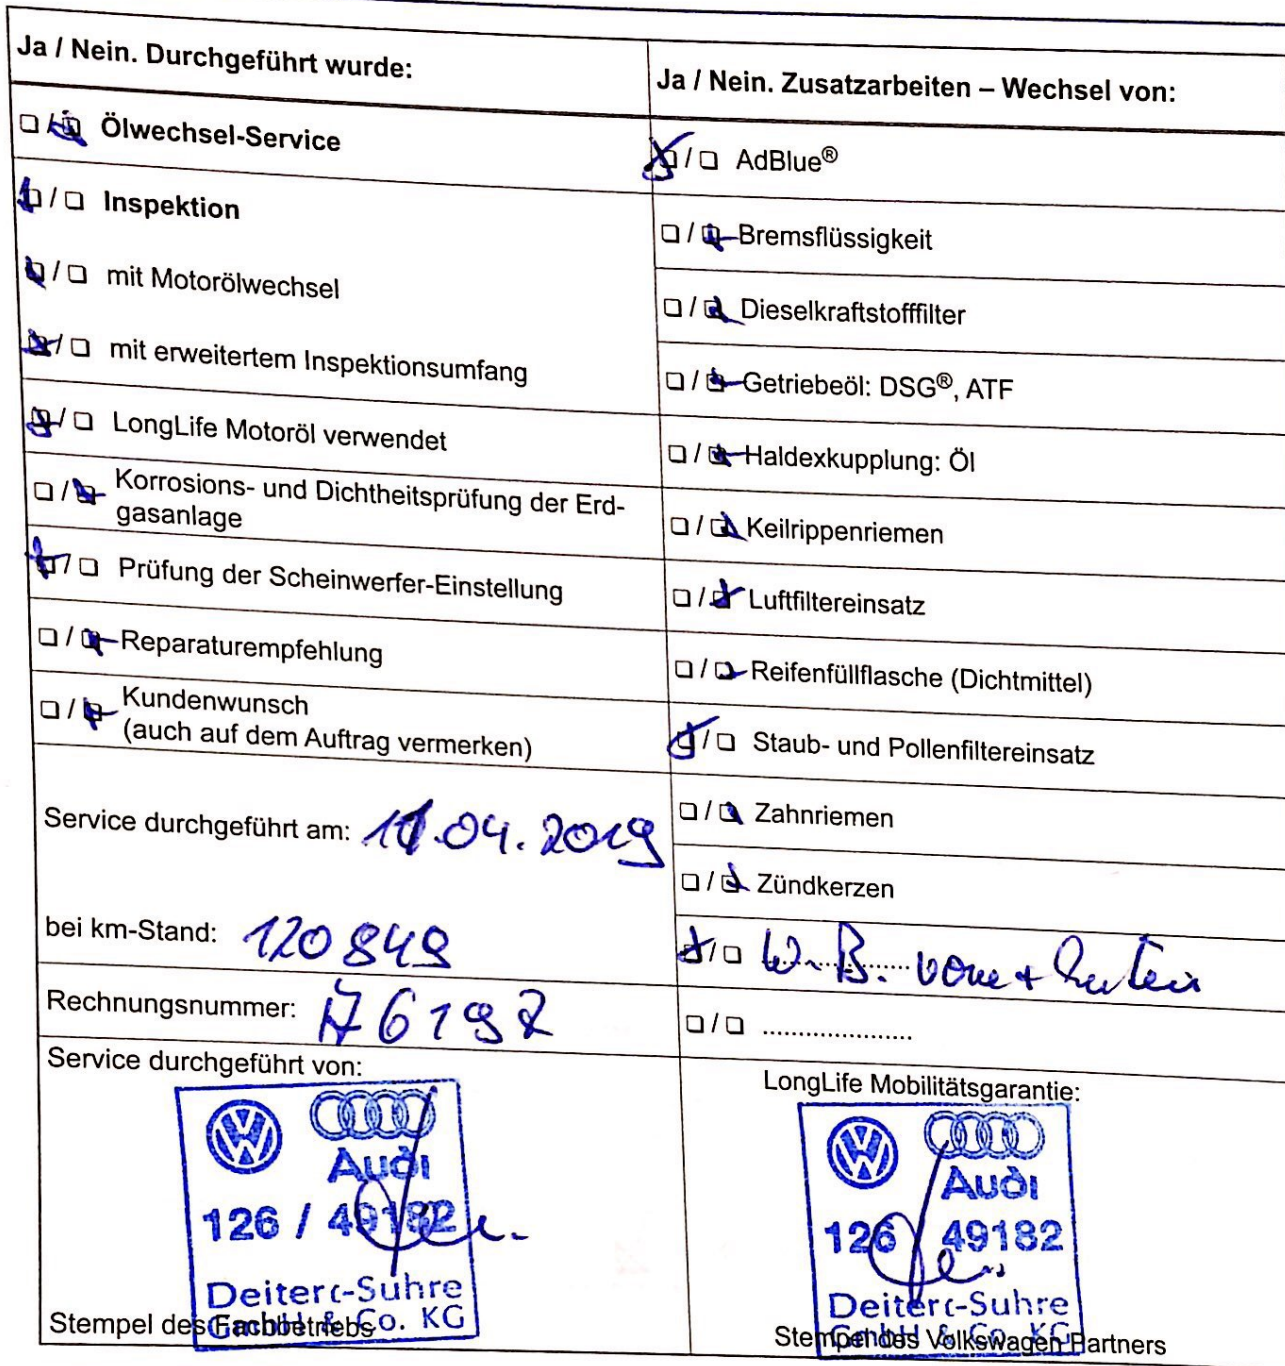 Ja / Nein. Durchgeführt wurde:
☐ / ☒ Ölwechsel-Service
☒ / ☐ Inspektion
☒ / ☐ mit Motorölwechsel
☒ / ☐ mit erweitertem Inspektionsumfang
☒ / ☐ LongLife Motoröl verwendet
☐ / ☒ Korrosions- und Dichtheitsprüfung der Erd-
gasanlage
☒ / ☐ Prüfung der Scheinwerfer-Einstellung
☐ / ☒ Reparaturempfehlung
☐ / ☒ Kundenwunsch
(auch auf dem Auftrag vermerken)
Service durchgeführt am: 11.04.2019
bei km-Stand: 120849
Rechnungsnummer: 176192
Service durchgeführt von:
Audi
126 / 49182
Deiter-Suhre
GmbH & Co. KG
Stempel des Fachbetriebs
Ja / Nein. Zusatzarbeiten – Wechsel von:
☒ / ☐ AdBlue®
☐ / ☒ Bremsflüssigkeit
☐ / ☒ Dieselkraftstofffilter
☐ / ☒ Getriebeöl: DSG®, ATF
☐ / ☒ Haldexkupplung: Öl
☐ / ☒ Keilrippenriemen
☐ / ☒ Luftfiltereinsatz
☐ / ☒ Reifenfüllflasche (Dichtmittel)
☒ / ☐ Staub- und Pollenfiltereinsatz
☐ / ☒ Zahnriemen
☐ / ☒ Zündkerzen
☒ / ☐ W-B. vorne + hinten
☐ / ☐ ......................
LongLife Mobilitätsgarantie:
Audi
126 / 49182
Deiter-Suhre
GmbH & Co. KG
Stempel des Volkswagen Partners